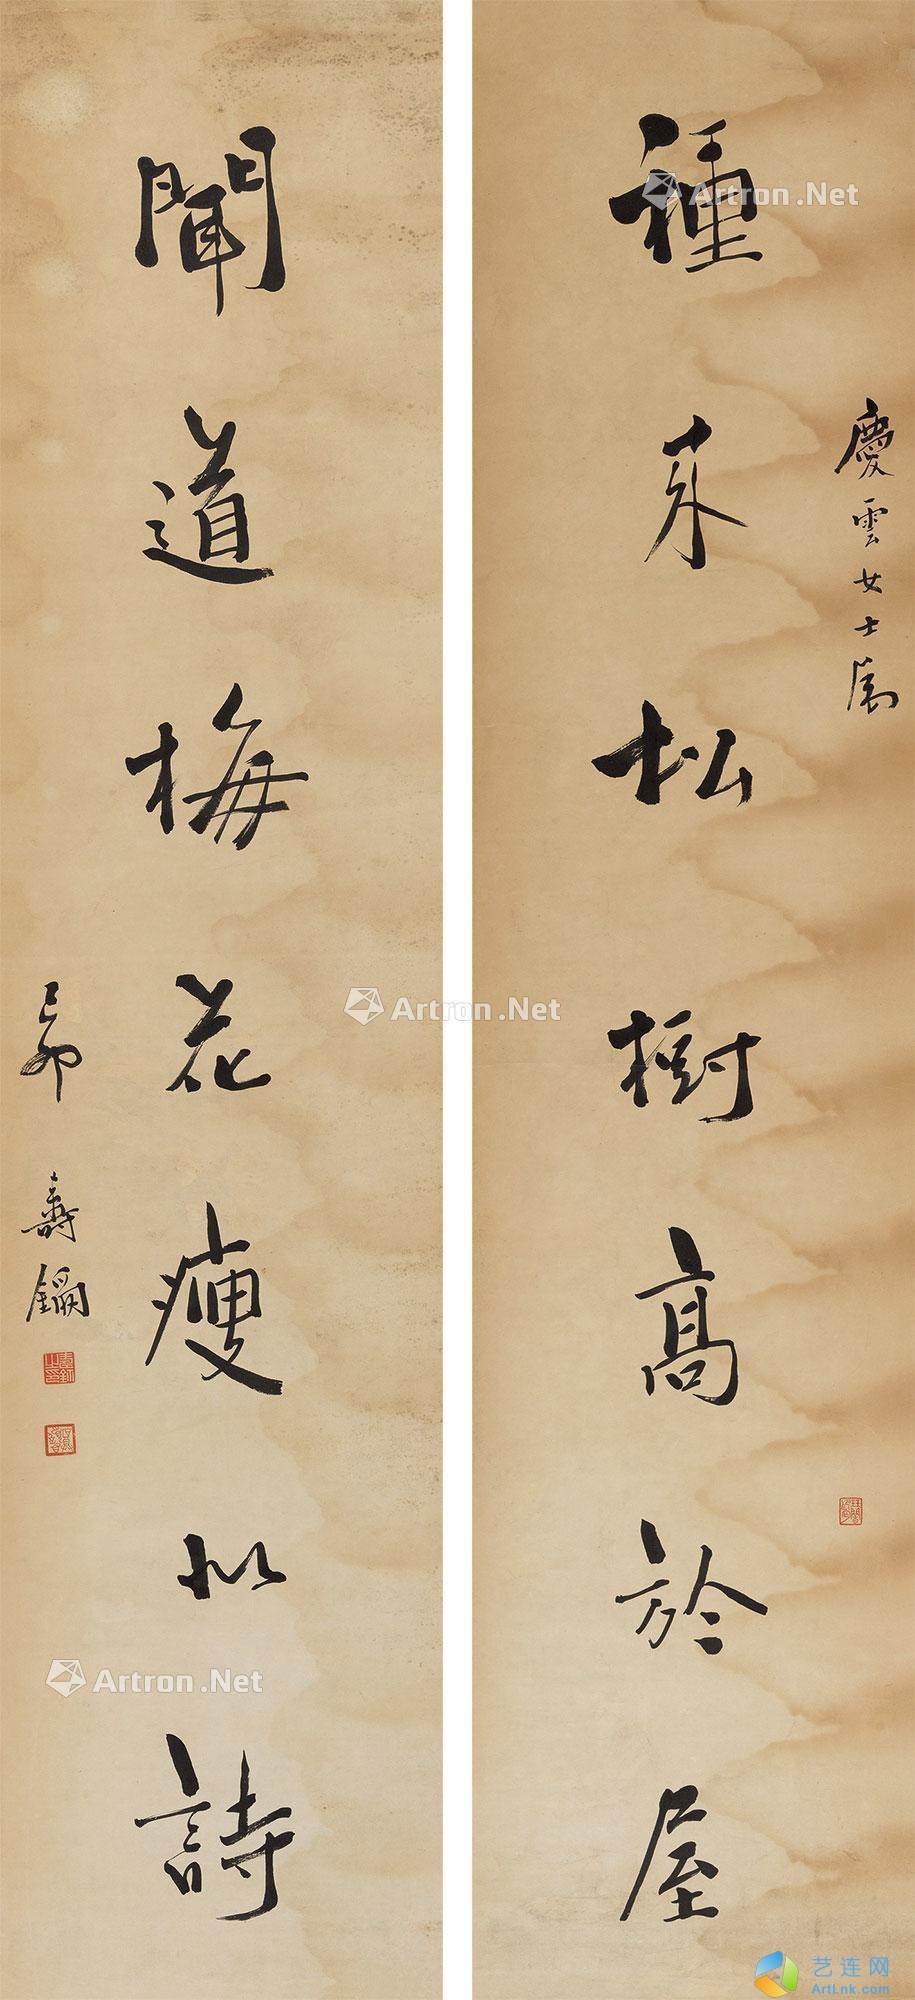 慶雲女士屬
種來松樹高於屋
聞道梅花瘦似詩
己卯 壽鐊
Artron.Net
Artron.Net
Artron.Net
艺连网
ArtLnk.com